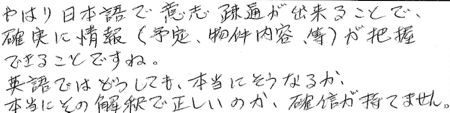 やはり日本語で意志疎通が出来ることで、
確実に情報(予定、物件内容、等)が把握
できることですね。
英語ではどうしても、本当にそうなるか、
本当にその解釈で正しいのか、確信が持てません。